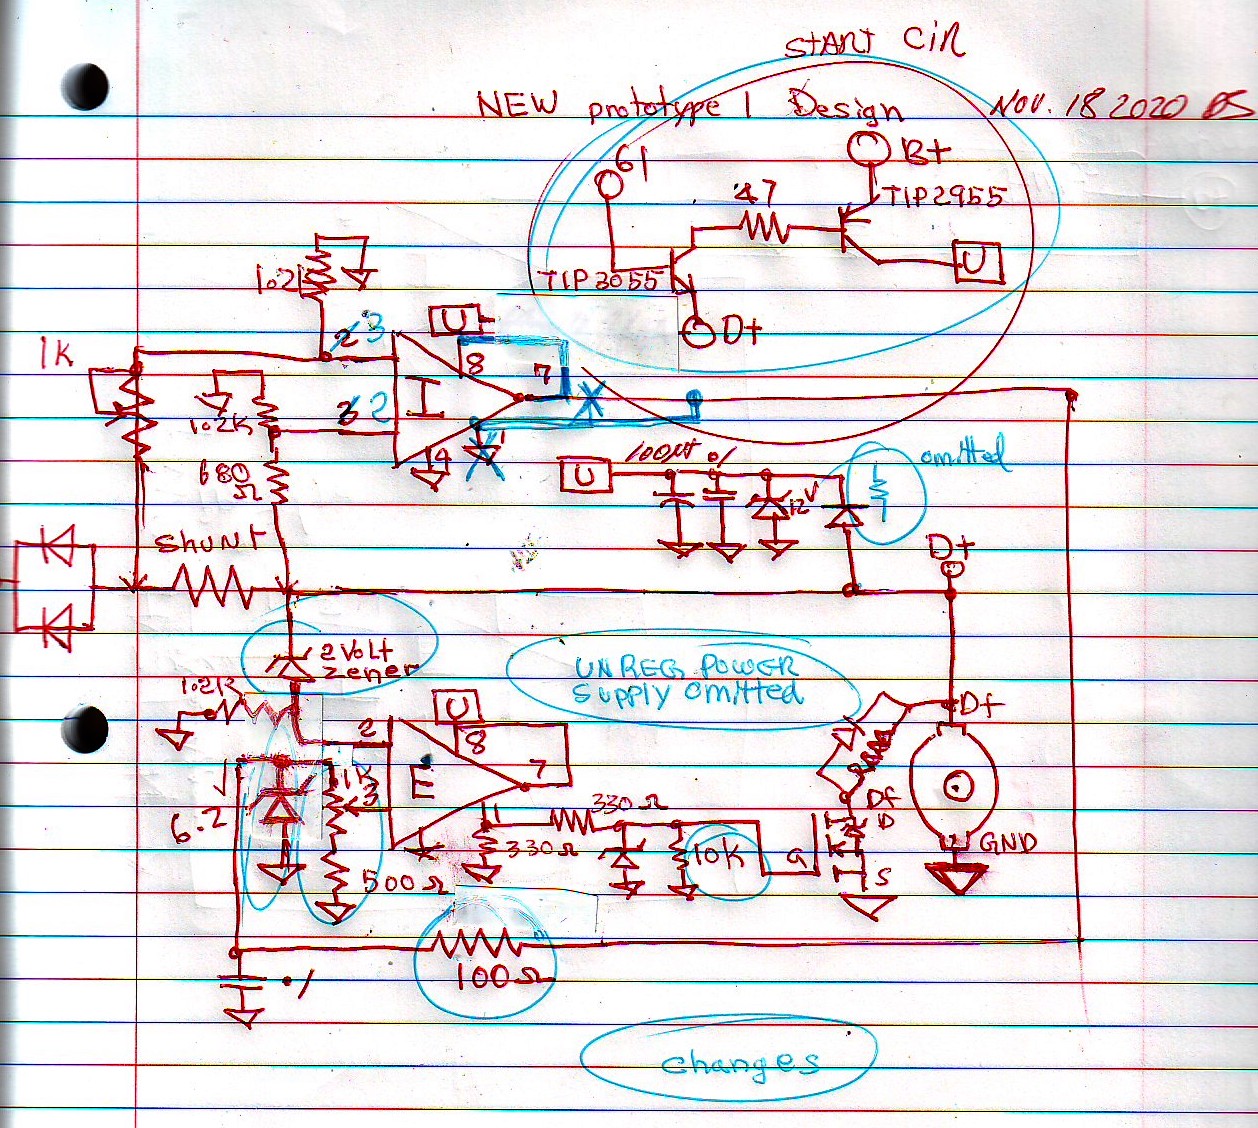 START CIR
NEW prototype 1 Design
NOV. 18 2020 DS
61
B+
47
TIP2955
U
TIP3055
D+
1.2K
U
1K
2 3
8
7
I
3 2
1.2K
1
4
680
Ω
U
100µf
.1
12V
omitted
Shunt
D+
2 Volt
zener
UNREG POWER
Supply omitted
1.2K
U
D+
2
8
7
E
1K
3
6.2
V
1
330Ω
330Ω
10K
Df
D
G
S
GND
500Ω
100Ω
.1
changes